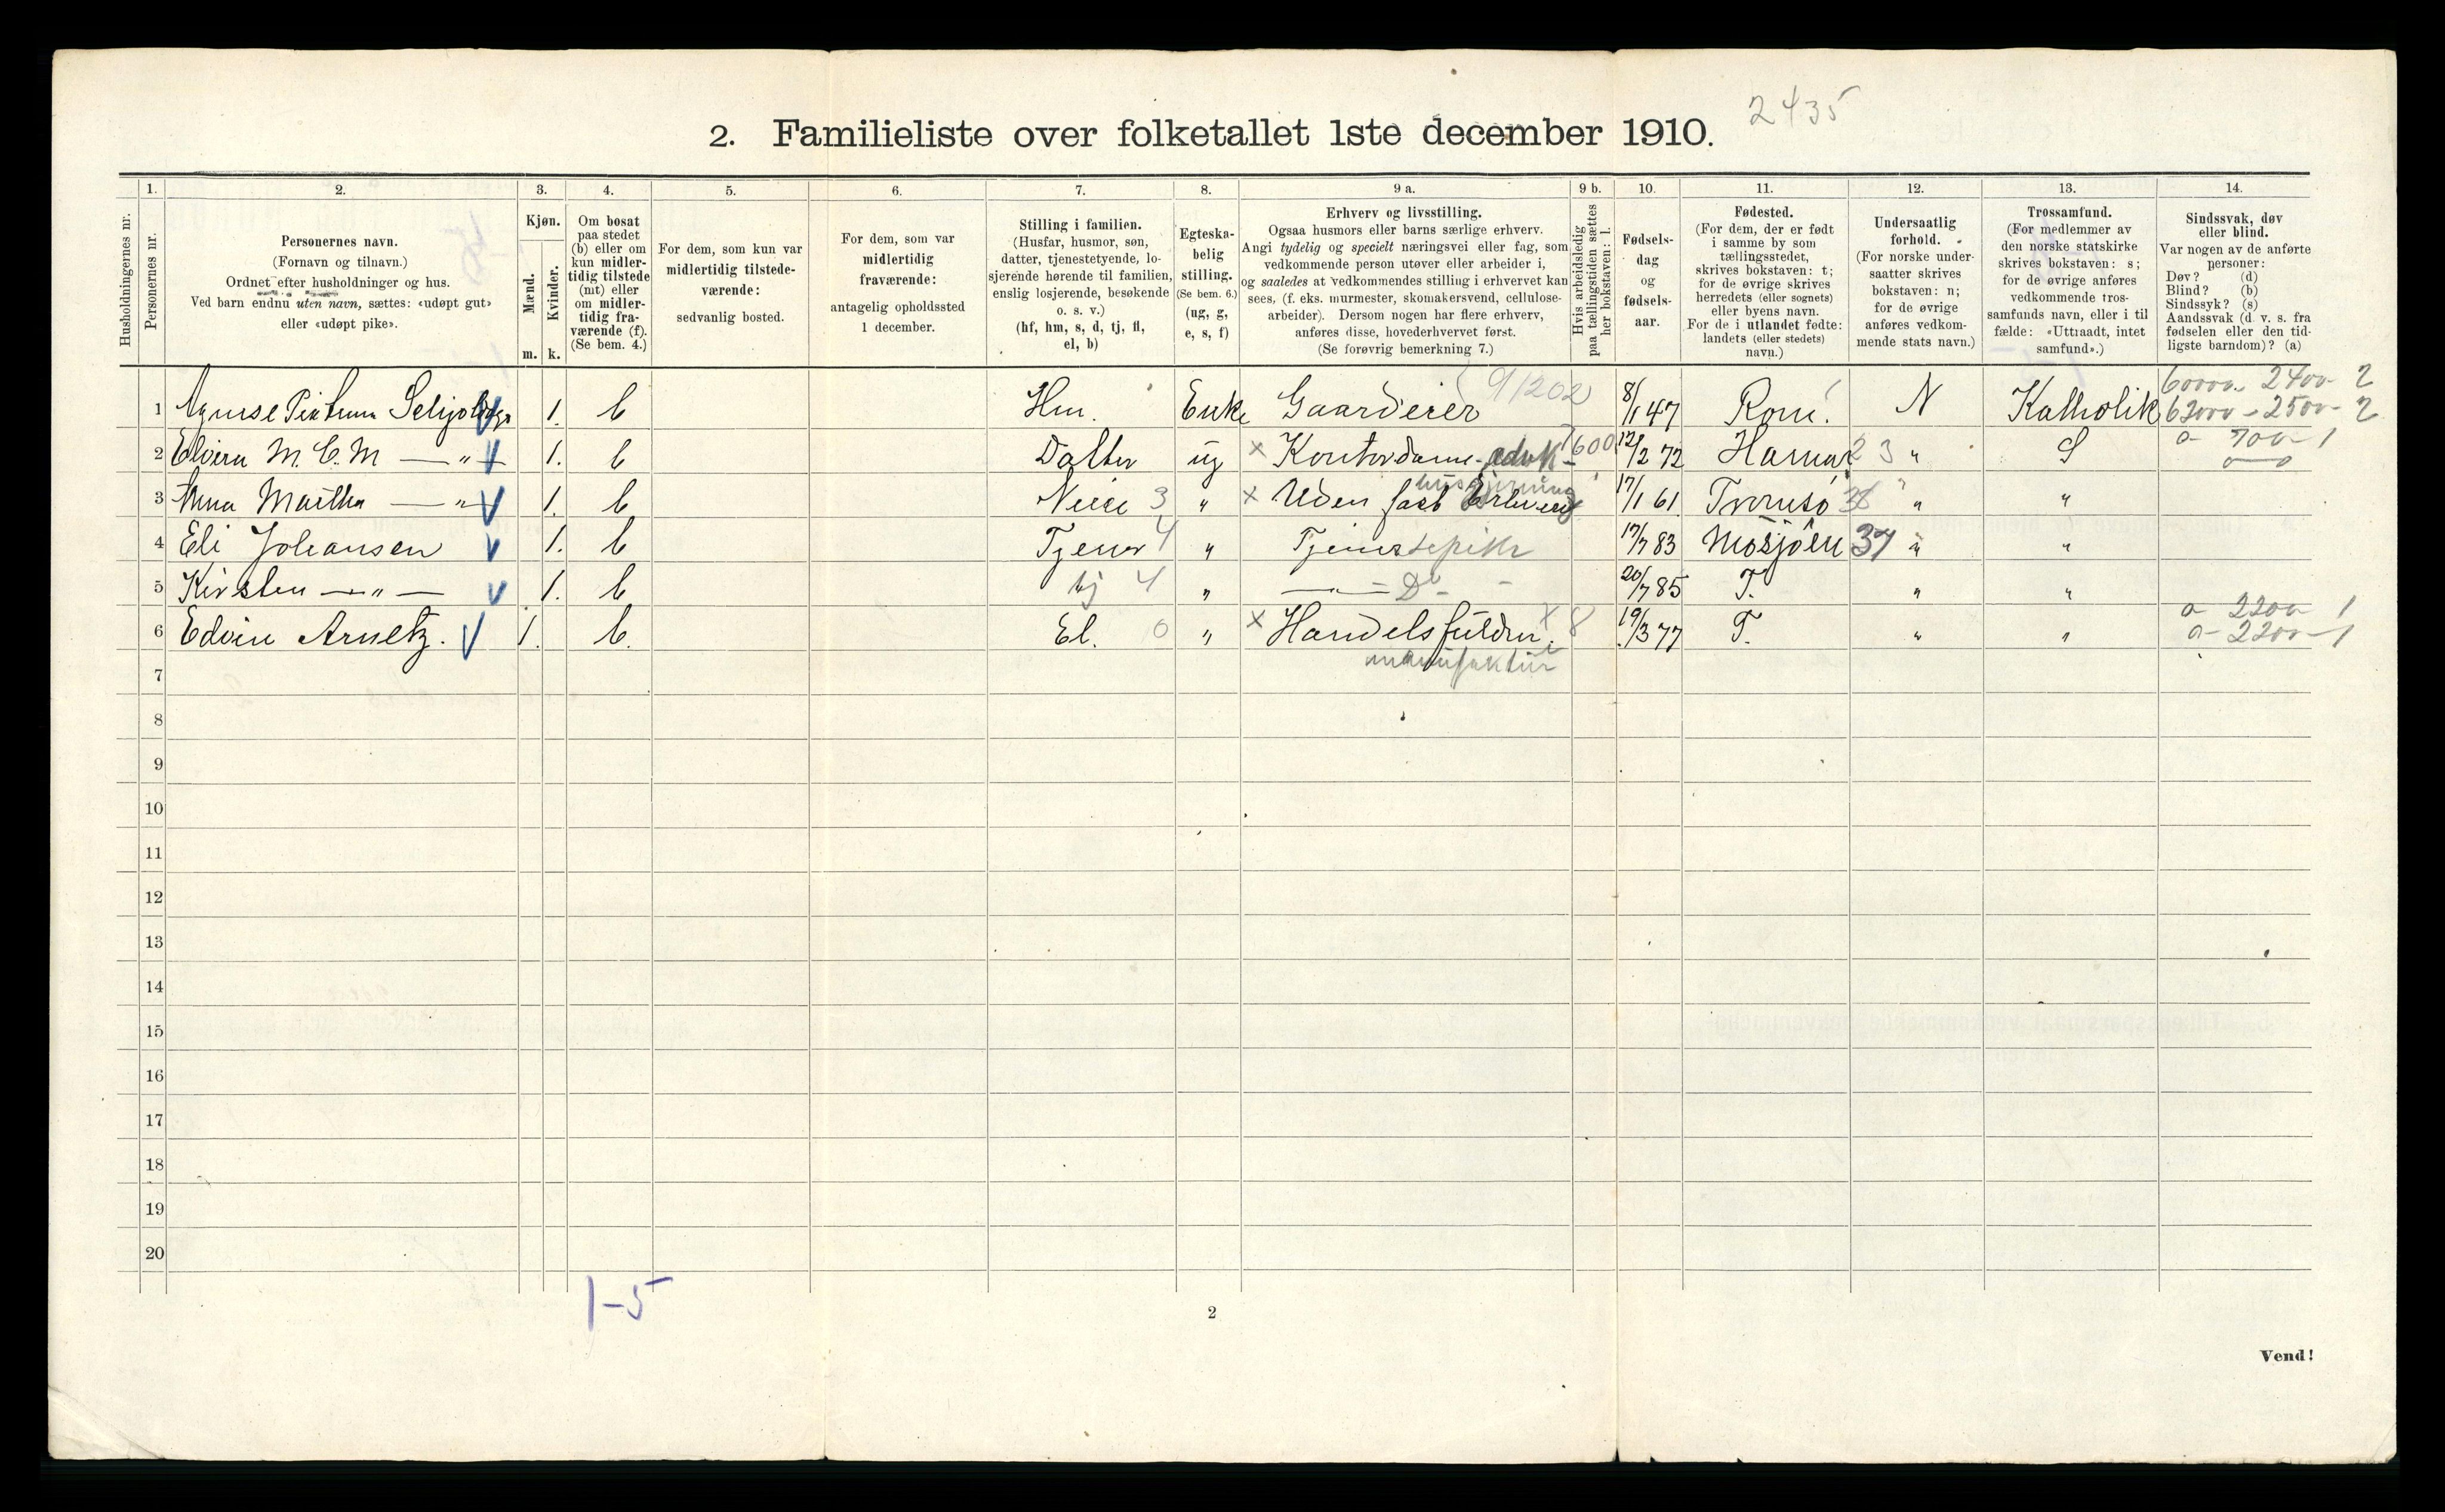 2435
2. Familieliste over folketallet 1ste december 1910.
Husholdningernes nr.
1. Personernes nr.
2. Personernes navn.
(Fornavn og tilnavn.)
Ordnet efter husholdninger og hus.
Ved barn endnu uten navn, sættes: «udøpt gut»
eller «udøpt pike».
3. Kjøn.
Mænd. m.
Kvinder. k.
4. Om bosat
paa stedet
(b) eller om
kun midler-
tidig tilstede
(mt) eller
om midler-
tidig fra-
værende (f).
(Se bem. 4.)
5. For dem, som kun var
midlertidig tilstede-
værende:
sedvanlig bosted.
6. For dem, som var
midlertidig
fraværende:
antagelig opholdssted
1 december.
7. Stilling i familien.
(Husfar, husmor, søn,
datter, tjenestetyende, lo-
sjerende hørende til familien,
enslig losjerende, besøkende
o. s. v.)
(hf, hm, s, d, tj, fl,
el, b)
8. Egteska-
belig
stilling.
(Se bem. 6.)
(ug, g,
e, s, f)
9 a. Erhverv og livsstilling.
Ogsaa husmors eller barns særlige erhverv.
Angi tydelig og specielt næringsvei eller fag, som
vedkommende person utøver eller arbeider i,
og saaledes at vedkommendes stilling i erhvervet kan
sees, (f. eks. murmester, skomakersvend, cellulose-
arbeider). Dersom nogen har flere erhverv,
anføres disse, hovederhvervet først.
(Se forøvrig bemerkning 7.)
9 b. Hvis arbeidsledig
paa tællingstiden sættes
her bokstaven: l.
10. Fødsels-
dag
og
fødsels-
aar.
11. Fødested.
(For dem, der er født
i samme by som
tællingsstedet,
skrives bokstaven: t;
for de øvrige skrives
herredets (eller sognets)
eller byens navn.
For de i utlandet fødte:
landets (eller stedets)
navn.)
12. Undersaatlig
forhold.
(For norske under-
saatter skrives
bokstaven: n;
for de øvrige
anføres vedkom-
mende stats navn.)
13. Trossamfund.
(For medlemmer av
den norske statskirke
skrives bokstaven: s;
for de øvrige anføres
vedkommende tros-
samfunds navn, eller i til
fælde: «Uttraadt, intet
samfund».)
14. Sindssvak, døv
eller blind.
Var nogen av de anførte
personer:
Døv? (d)
Blind? (b)
Sindssyk? (s)
Aandssvak (d. v. s. fra
fødselen eller den tid-
ligste barndom)? (a)
1 1. b Hm. Enke Gaardeier 9/202 8/1 47 Rom. N Katholik 60000 - 2400 - 2
62000 - 2500 - 2
2 Elvira M. C. M — „ — 1. b Datter ug × Kontordame - advk 7600 12/2 72 Hamar 23 „ S a - 700 - 1
3 Anna Martha — „ — 1. b Neice 3 „ × Uden fast Erhverv husgjerning 17/1 61 Tromsø „ „
4 Eli Johansen 1. b Tjener 4 „ Tjenestepike 17/7 83 Mosjøen 37 „ „
5 Kirsten — „ — 1. b tj 4 „ — D° - 20/7 85 T. „ „
6 Edvin Arnetz. 1. b. El. 0 „ × Handelsfuldm. × 8 19/3 77 T. „ „ a - 2200 - 1
a - 2200 - 1
i manufaktur
7
8
9
10
11
12
13
14
15
16
17
18
19
20
1-5
2
Vend!